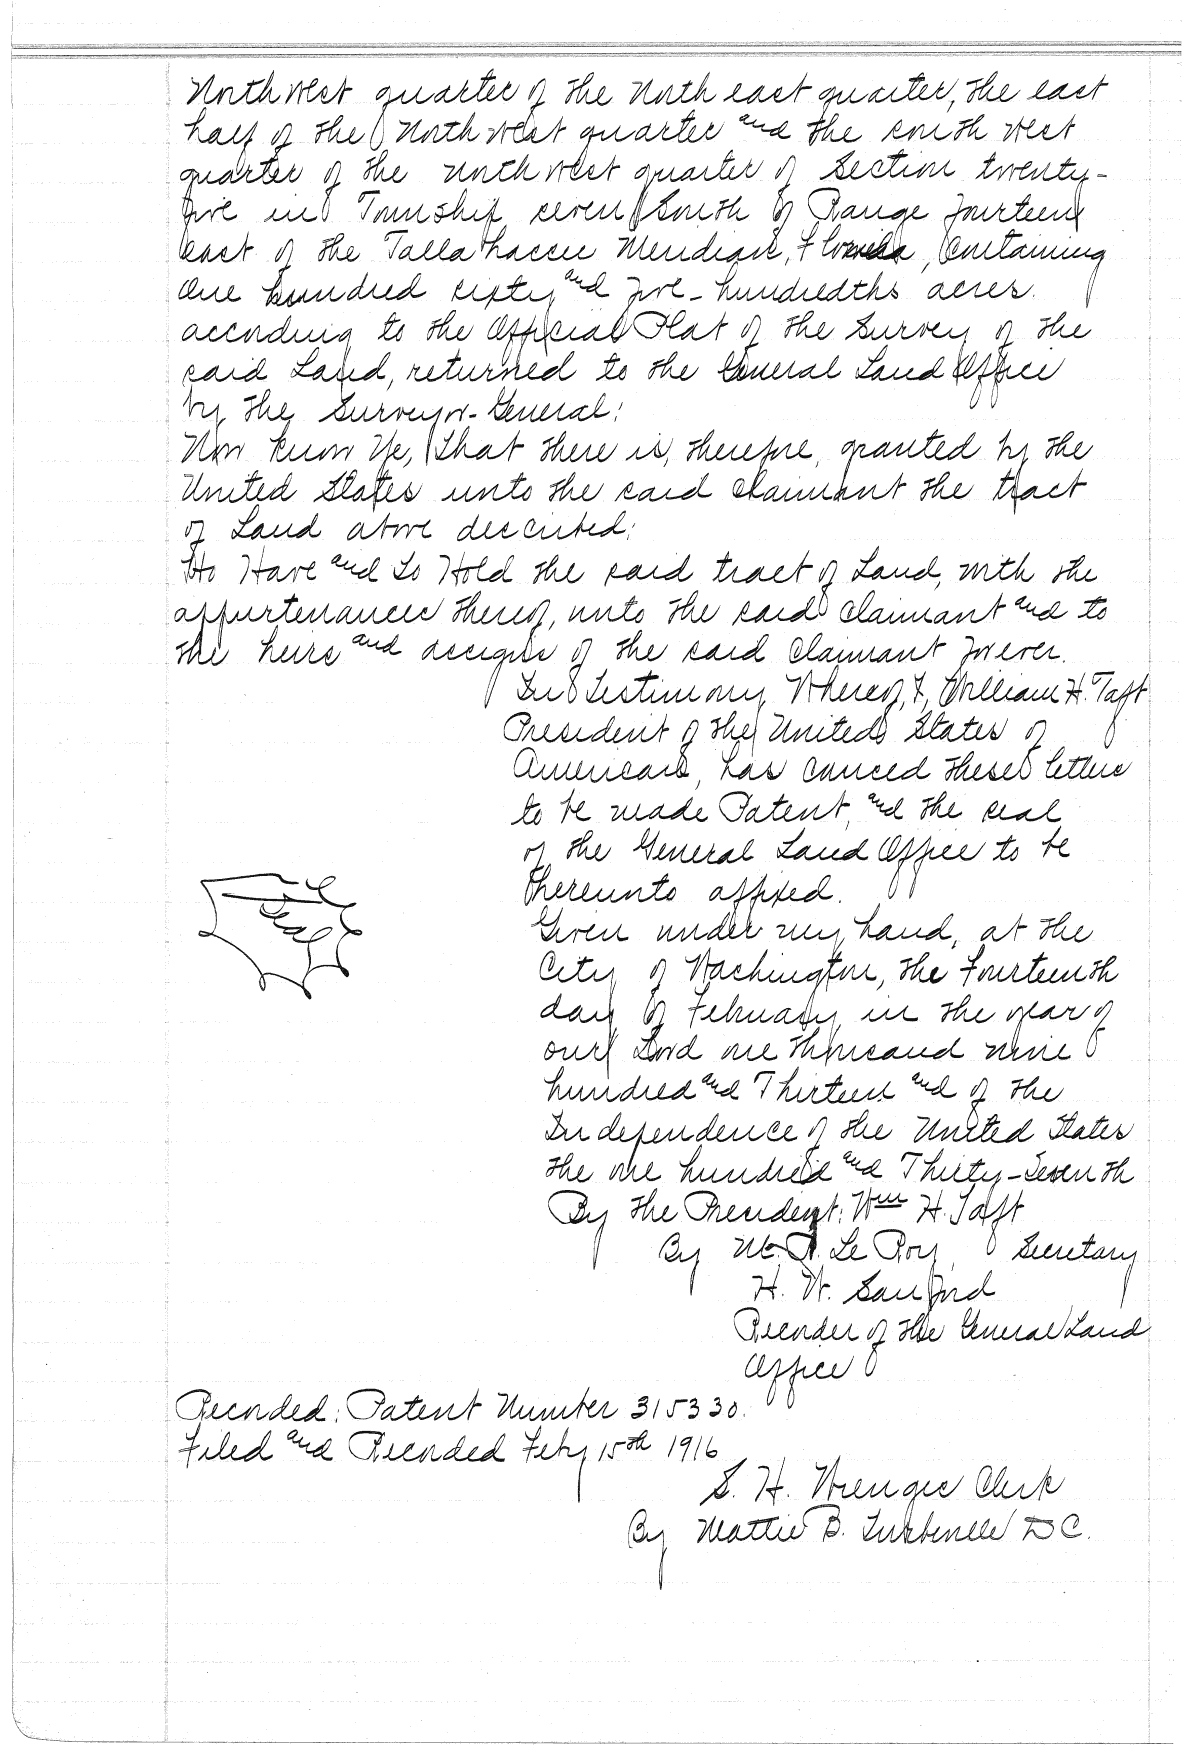 North west quarter of the North east quarter, the east
half of the North west quarter and the south west
quarter of the north west quarter of Section twenty-
five in Township seven South of Range fourteen
east of the Tallahassee Meridian, Florida, Containing
One hundred sixty and five-hundredths acres.
according to the Official Plat of the Survey of the
said Land, returned to the General Land Office
by the Surveyor-General:
Now Know Ye, that there is, therefore, granted by the
United States unto the said claimant the tract
of Land above described:
To Have and To Hold the said tract of Land, with the
appurtenances thereof, unto the said claimant and to
the heirs and assigns of the said claimant forever.
In Testimony Whereof, I, William H. Taft
President of the United States of
American, has caused these letters
to be made Patent, and the seal
of the General Land Office to be
thereunto affixed.
Seal
Given under my hand, at the
City of Washington, the Fourteenth
day of February in the year of
our Lord one thousand nine
hundred and Thirteen and of the
Independence of the United States
the one hundred and Thirty-Seventh
By the President: Wm H. Taft
By M. P. Le Roy Secretary
H. W. Sanford
Recorder of the General Land
Office
Recorded: Patent Number 315330.
Filed and Recorded Feby 15th 1916
S. H. Clerk
By Mattie B. D C.